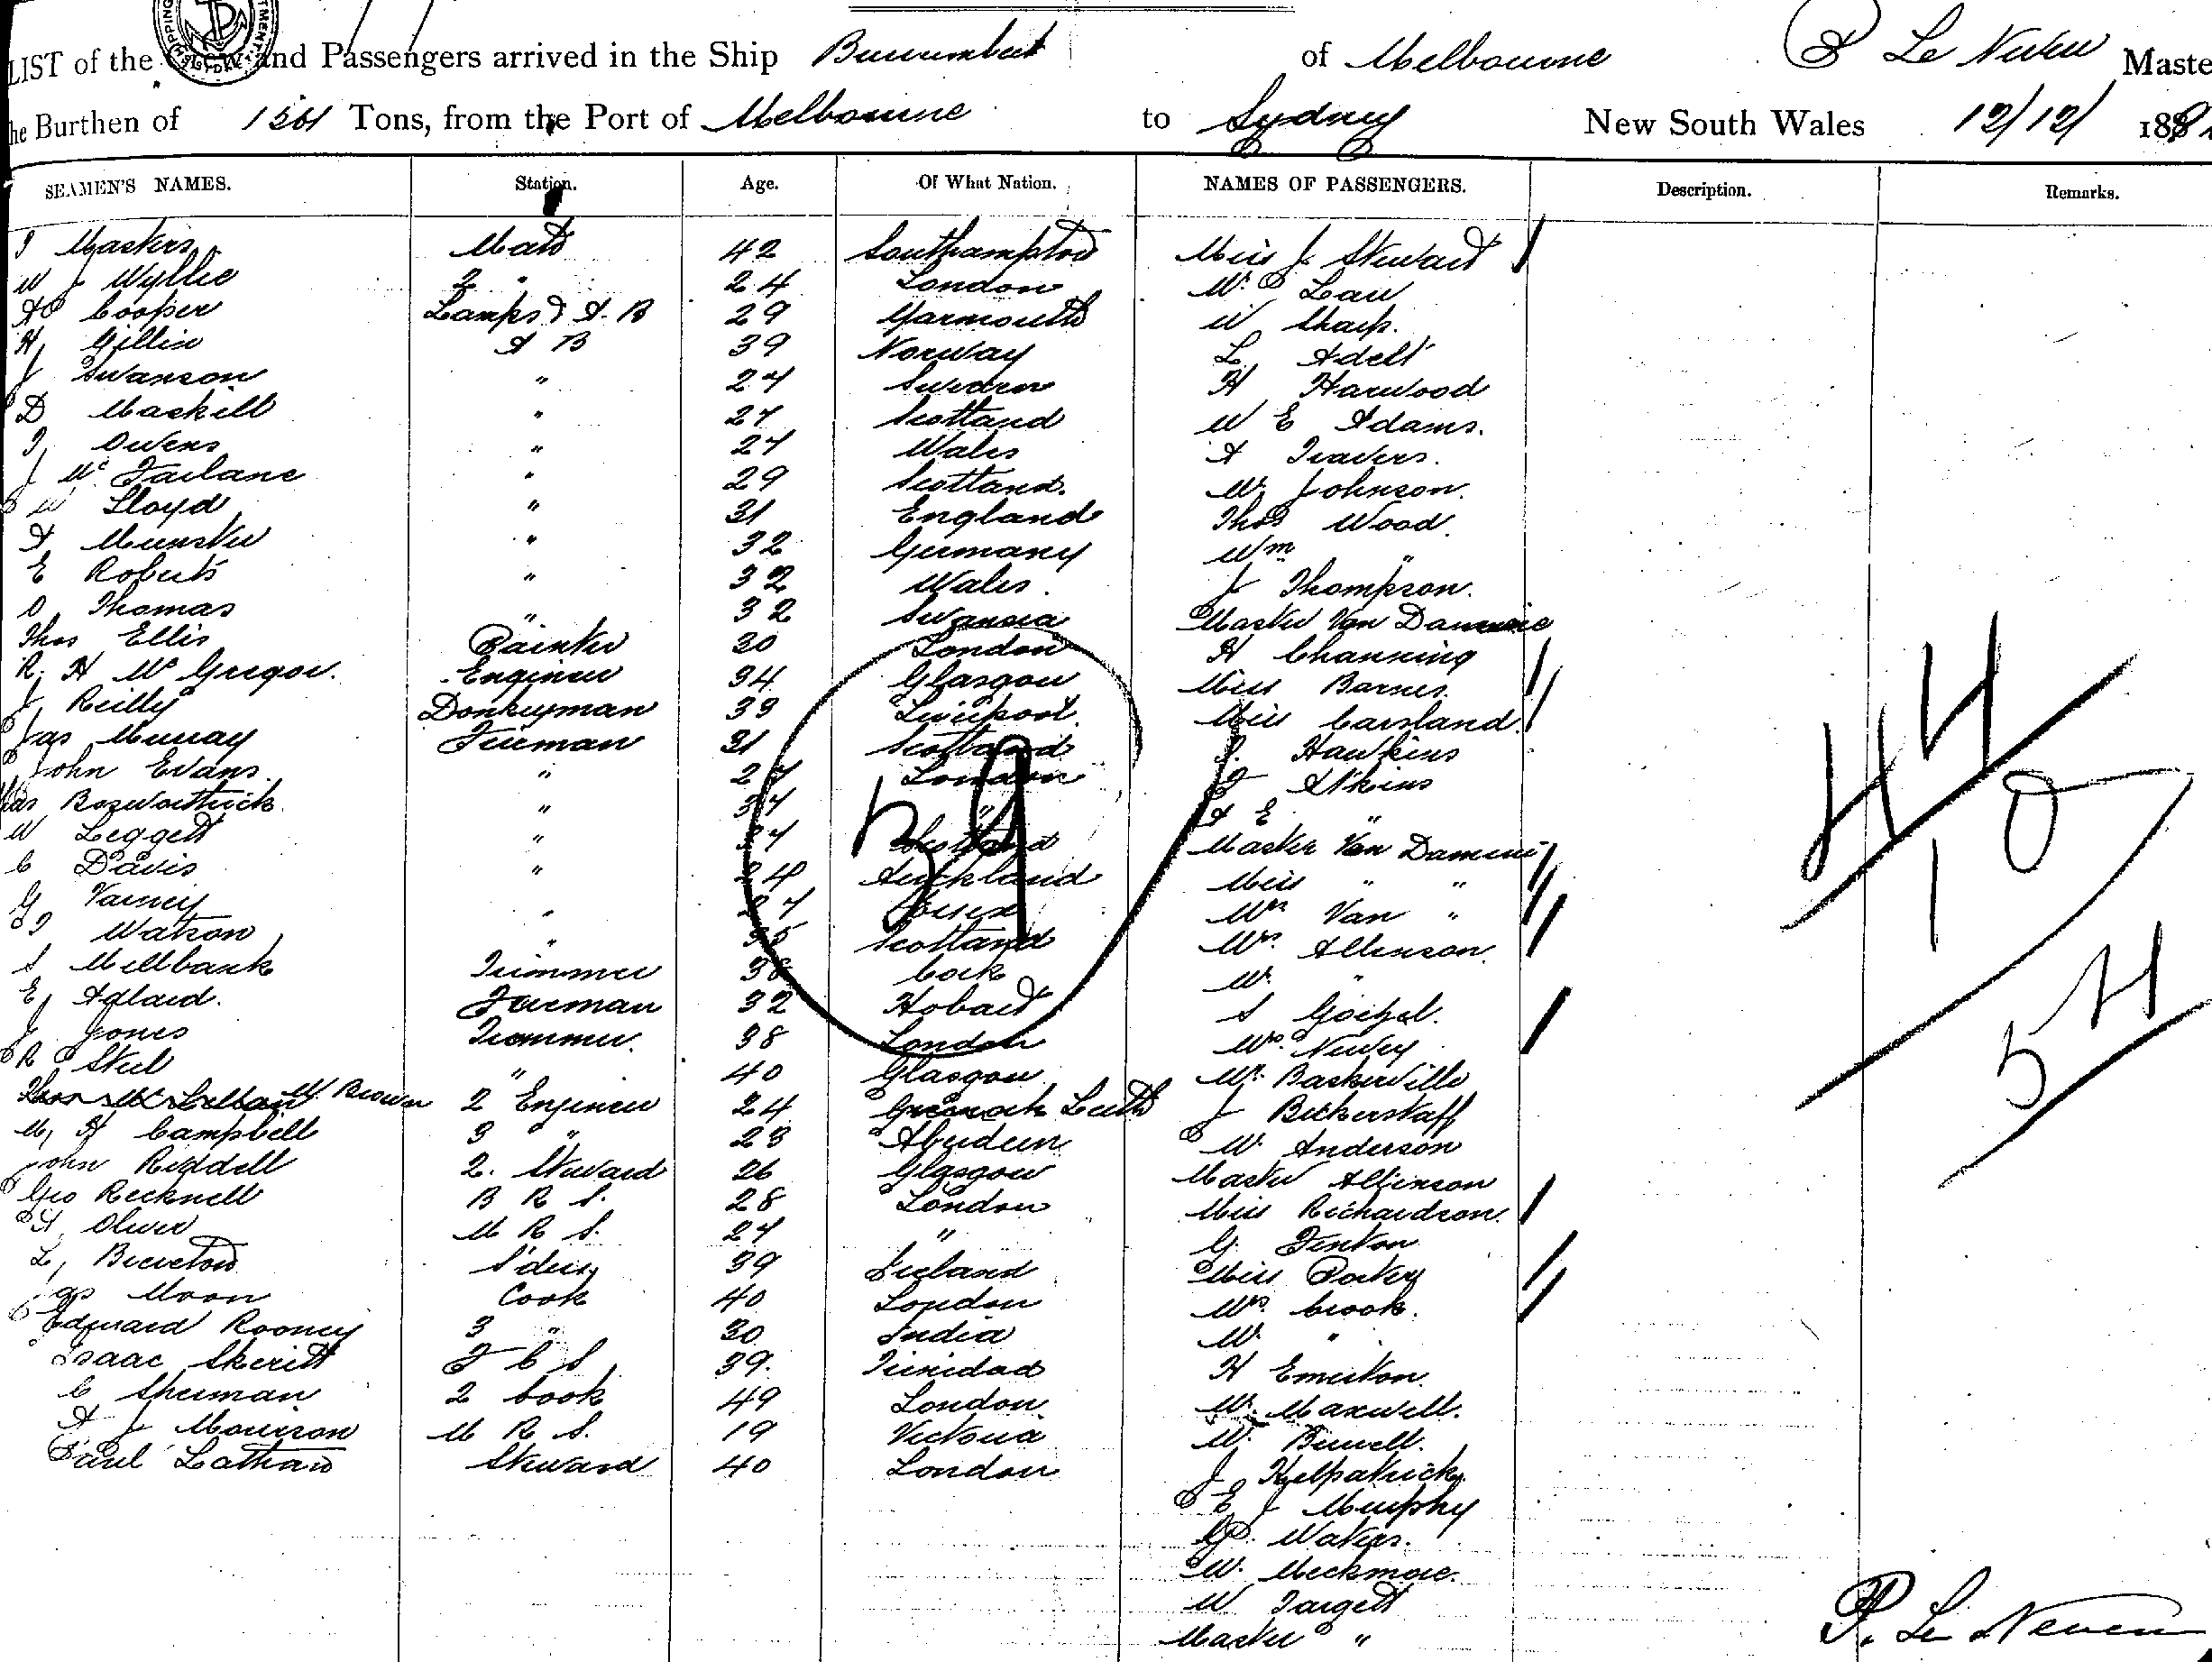 LIST of the Crew and Passengers arrived in the Ship Burrumbeet of Melbourne P Le Neveu Maste
he Burthen of Tons, from the Port of Melbourne to Sydney New South Wales 12/12/ 188
SEAMEN'S NAMES. Station. Age. Of What Nation. NAMES OF PASSENGERS. Description. Remarks.
J Masters Mate 42 Southampton Miss J Stewart
W J Wyllie 2 " 24 London Mr Law
A Cooper Lamps & A.B 29 Yarmouth W Sharp.
H Gillin A B 39 Norway L Adelt
J Swanson " 27 Sweden H Harwood
D Maskill " 27 Scotland W E Adams.
J Owens " 27 Wales A Travers.
J Mc Farlane " 29 Scotland. W Johnson.
W Lloyd " 31 England Thos Wood
A Munster " 32 Germany Wm "
E Roberts " 32 Wales. J Thompson.
O Thomas " 32 Swansea Master Van Damme
Thos Ellis Painter 30 London H Channing
R. H Mc Gregor. Engineer 34 Glasgow Miss Barnes.
J Reilly Donkeyman 39 Liverpool Miss Carsland.
Jas Murray Fireman 31 Scotland Hawkins
John Evans. " 27 London J Atkins
Chas " 37 " A E "
W Leggett " 37 Scotland Master Van Damme
C Davis " 24 Auckland Miss " "
G Varney " 27 Essex Mrs Van "
J Watson " 35 Scotland Mrs Allinson.
S Millbank Trimmer 38 Cork W. "
E Adlard. Fireman 32 Hobart S
J Jones Trimmer. 38 London Mrs Newey
R Steel " 40 Glasgow Mr Baskerville
M. Brown 2 Engineer 24 Leith J Bickerstaff
M, H Campbell 3 " 23 Aberdeen W. Anderson
John Riddell 2. Steward 26 Glasgow Master Allinson
Geo Recknell B R S. 28 London Miss Richardson.
H. Oliver M R S. 27 " G. Fenton
L, Brereton S'dess 39 Ireland Miss Porter
Jas Moon Cook 40 London Mrs Crook.
Edward Rooney 3 " 30 India W. "
Isaac Skeritt F C S 39. Trinidad H Emerton.
C Sherman 2 Cook 49 London W. Maxwell.
A J Morrison M R S. 19 Victoria W.
Paul Latham Steward 40 London J Kilpatrick
E J Murphy
G. Waters.
W.
W Targett
Master "
59
44
10
54
P. Le Neveu